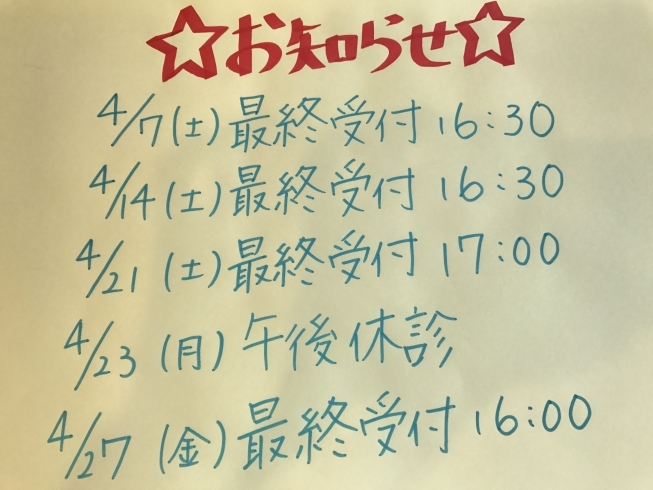 ☆お知らせ☆
4/7(土)最終受付 16:30
4/14(土)最終受付 16:30
4/21(土)最終受付 17:00
4/23(月)午後休診
4/27(金)最終受付 16:00